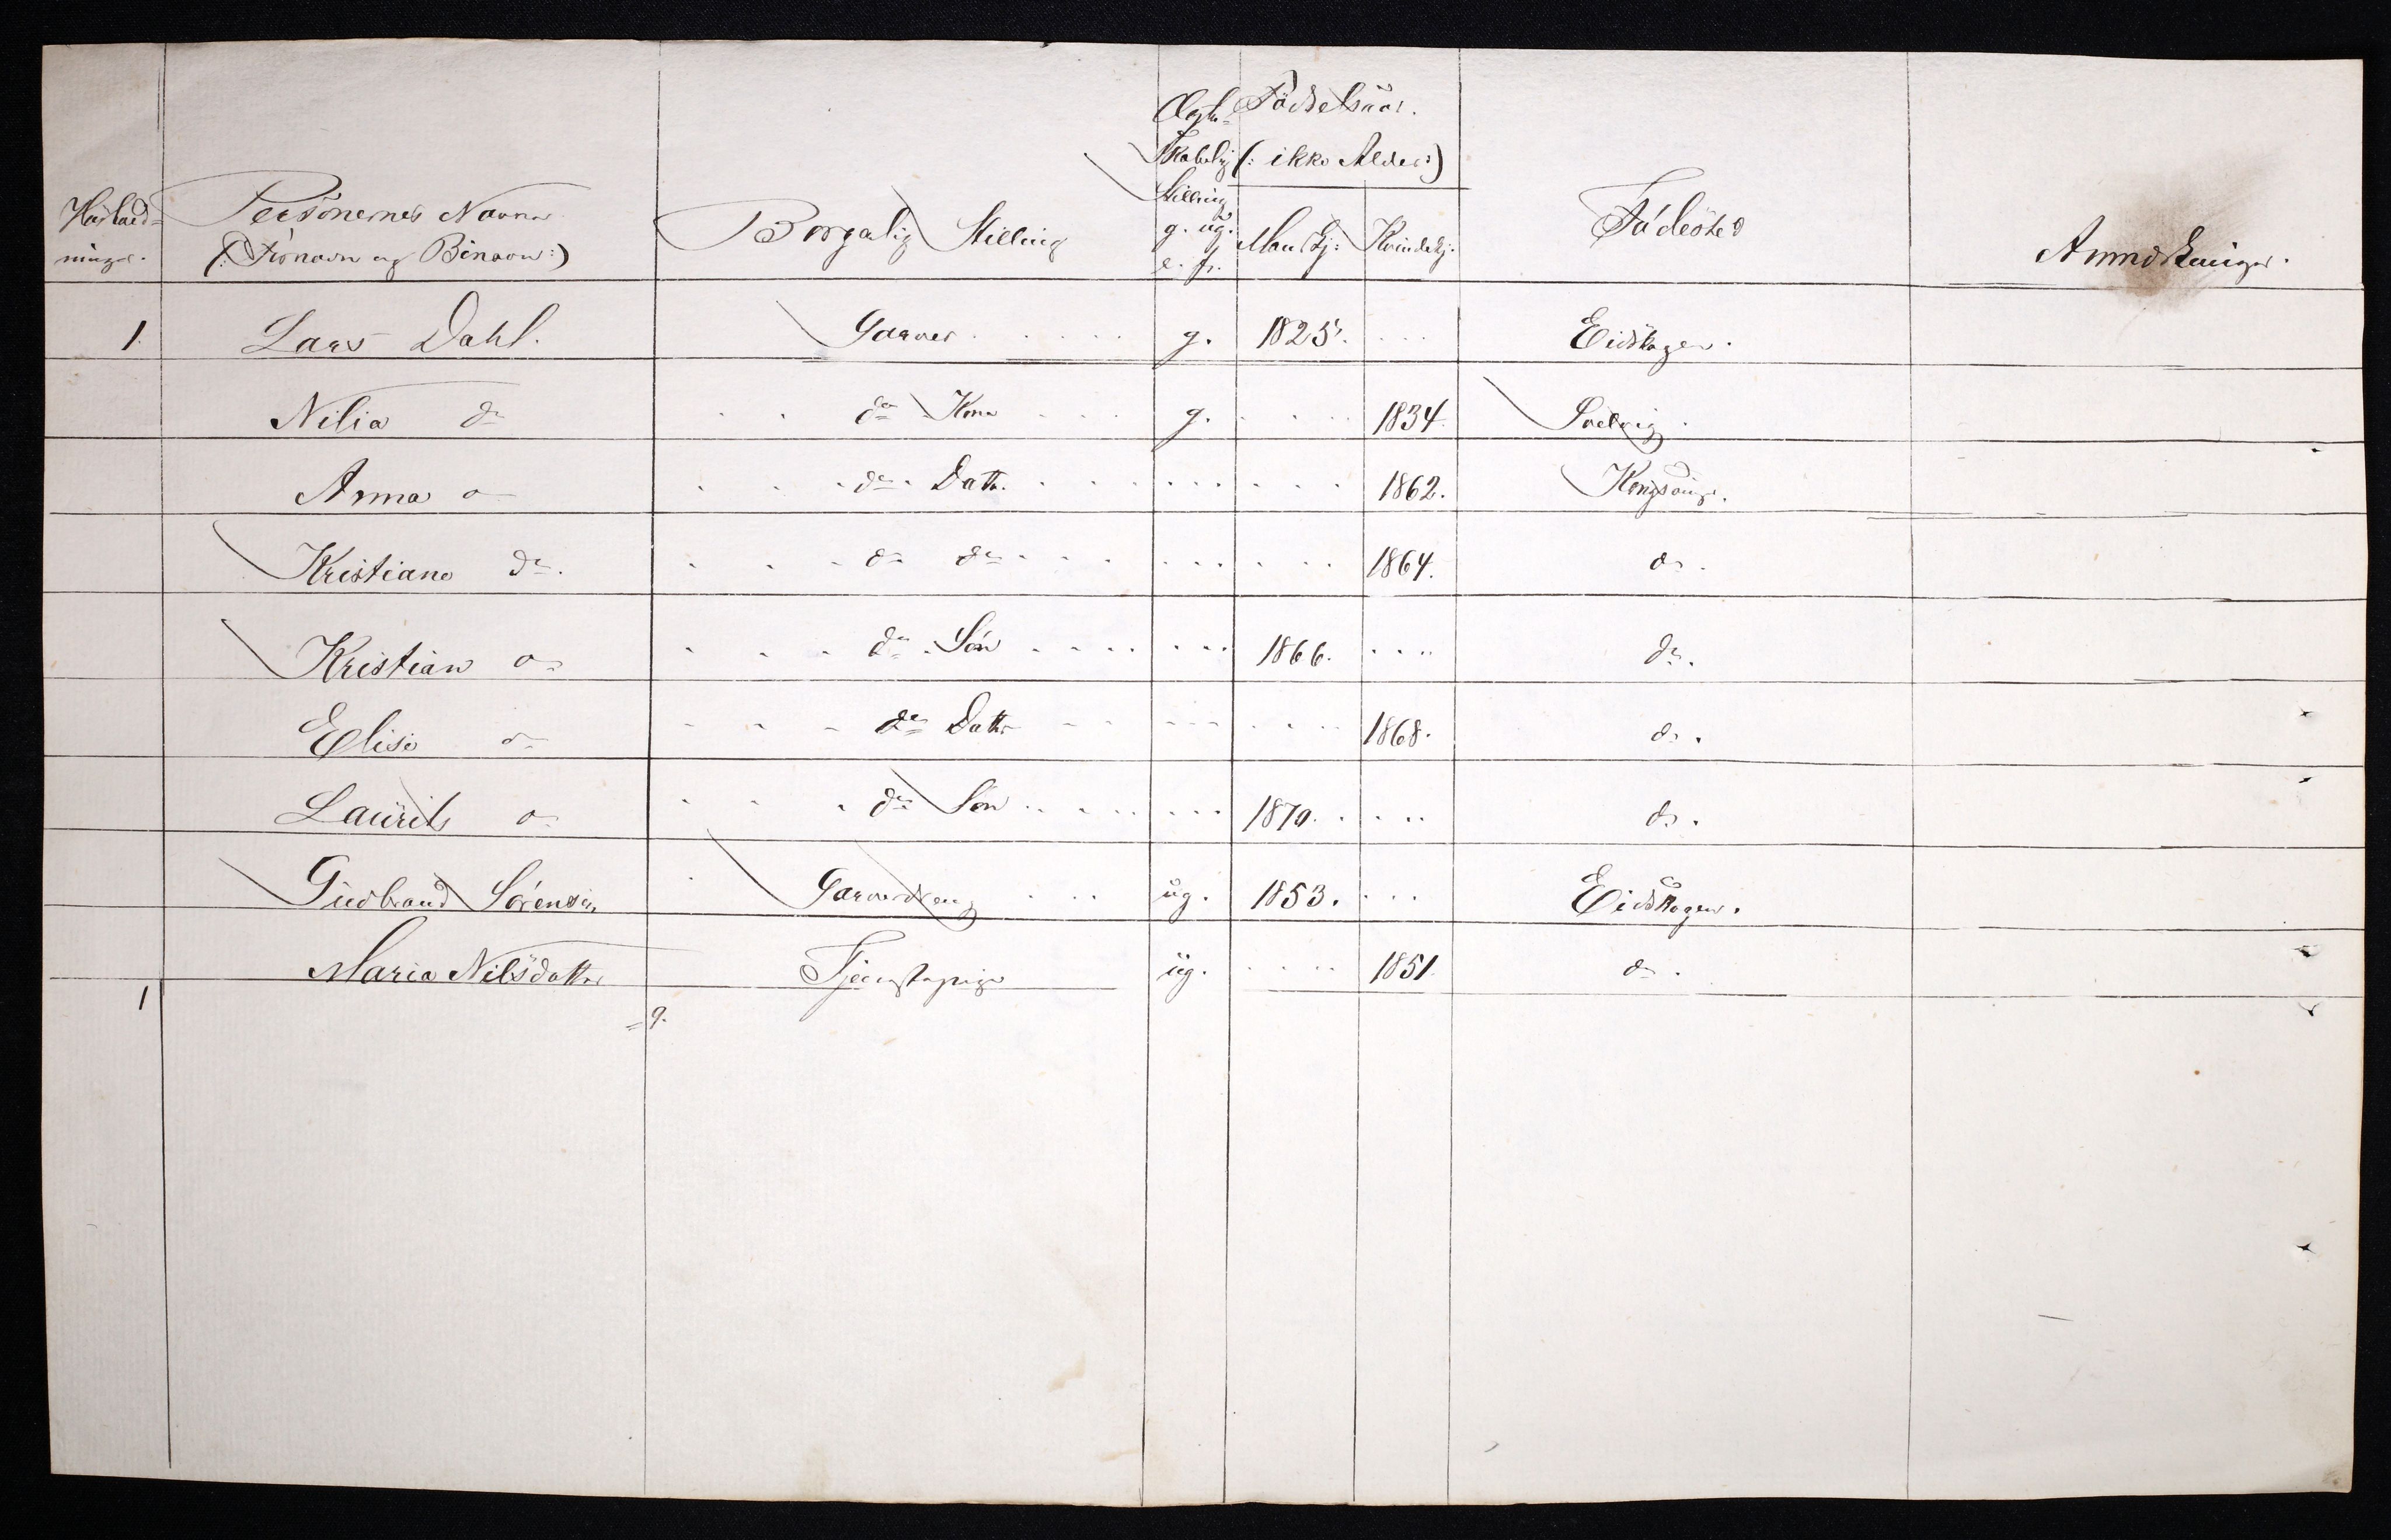 Husholdninger.
Personernes Navne
(: Fornavn og Binavn :)
Borgelig Stilling
Ægteskabelig Stilling g. ug. e. fr.
Födselsaar.
(: ikke Alder :)
Mandkj: Kvindekj.
Födested
Anmærkninger.
1. Lars Dahl. Garver g. 1825. Eidskogen.
Nilia do do Kone g. 1834. Svelvig.
Anna do do Datt. 1862. Kongsvinger.
Kristiane do. do do 1864. do.
Kristian do do Sön 1866. do.
Elise do do Datter 1868. do.
Laurits do do Sön 1870. do.
Gudbrand Sörensen Garverdreng ug. 1853. Eidskogen.
Maria Nilsdatter Tjenestepige ug. 1851. do.
1 = 9.